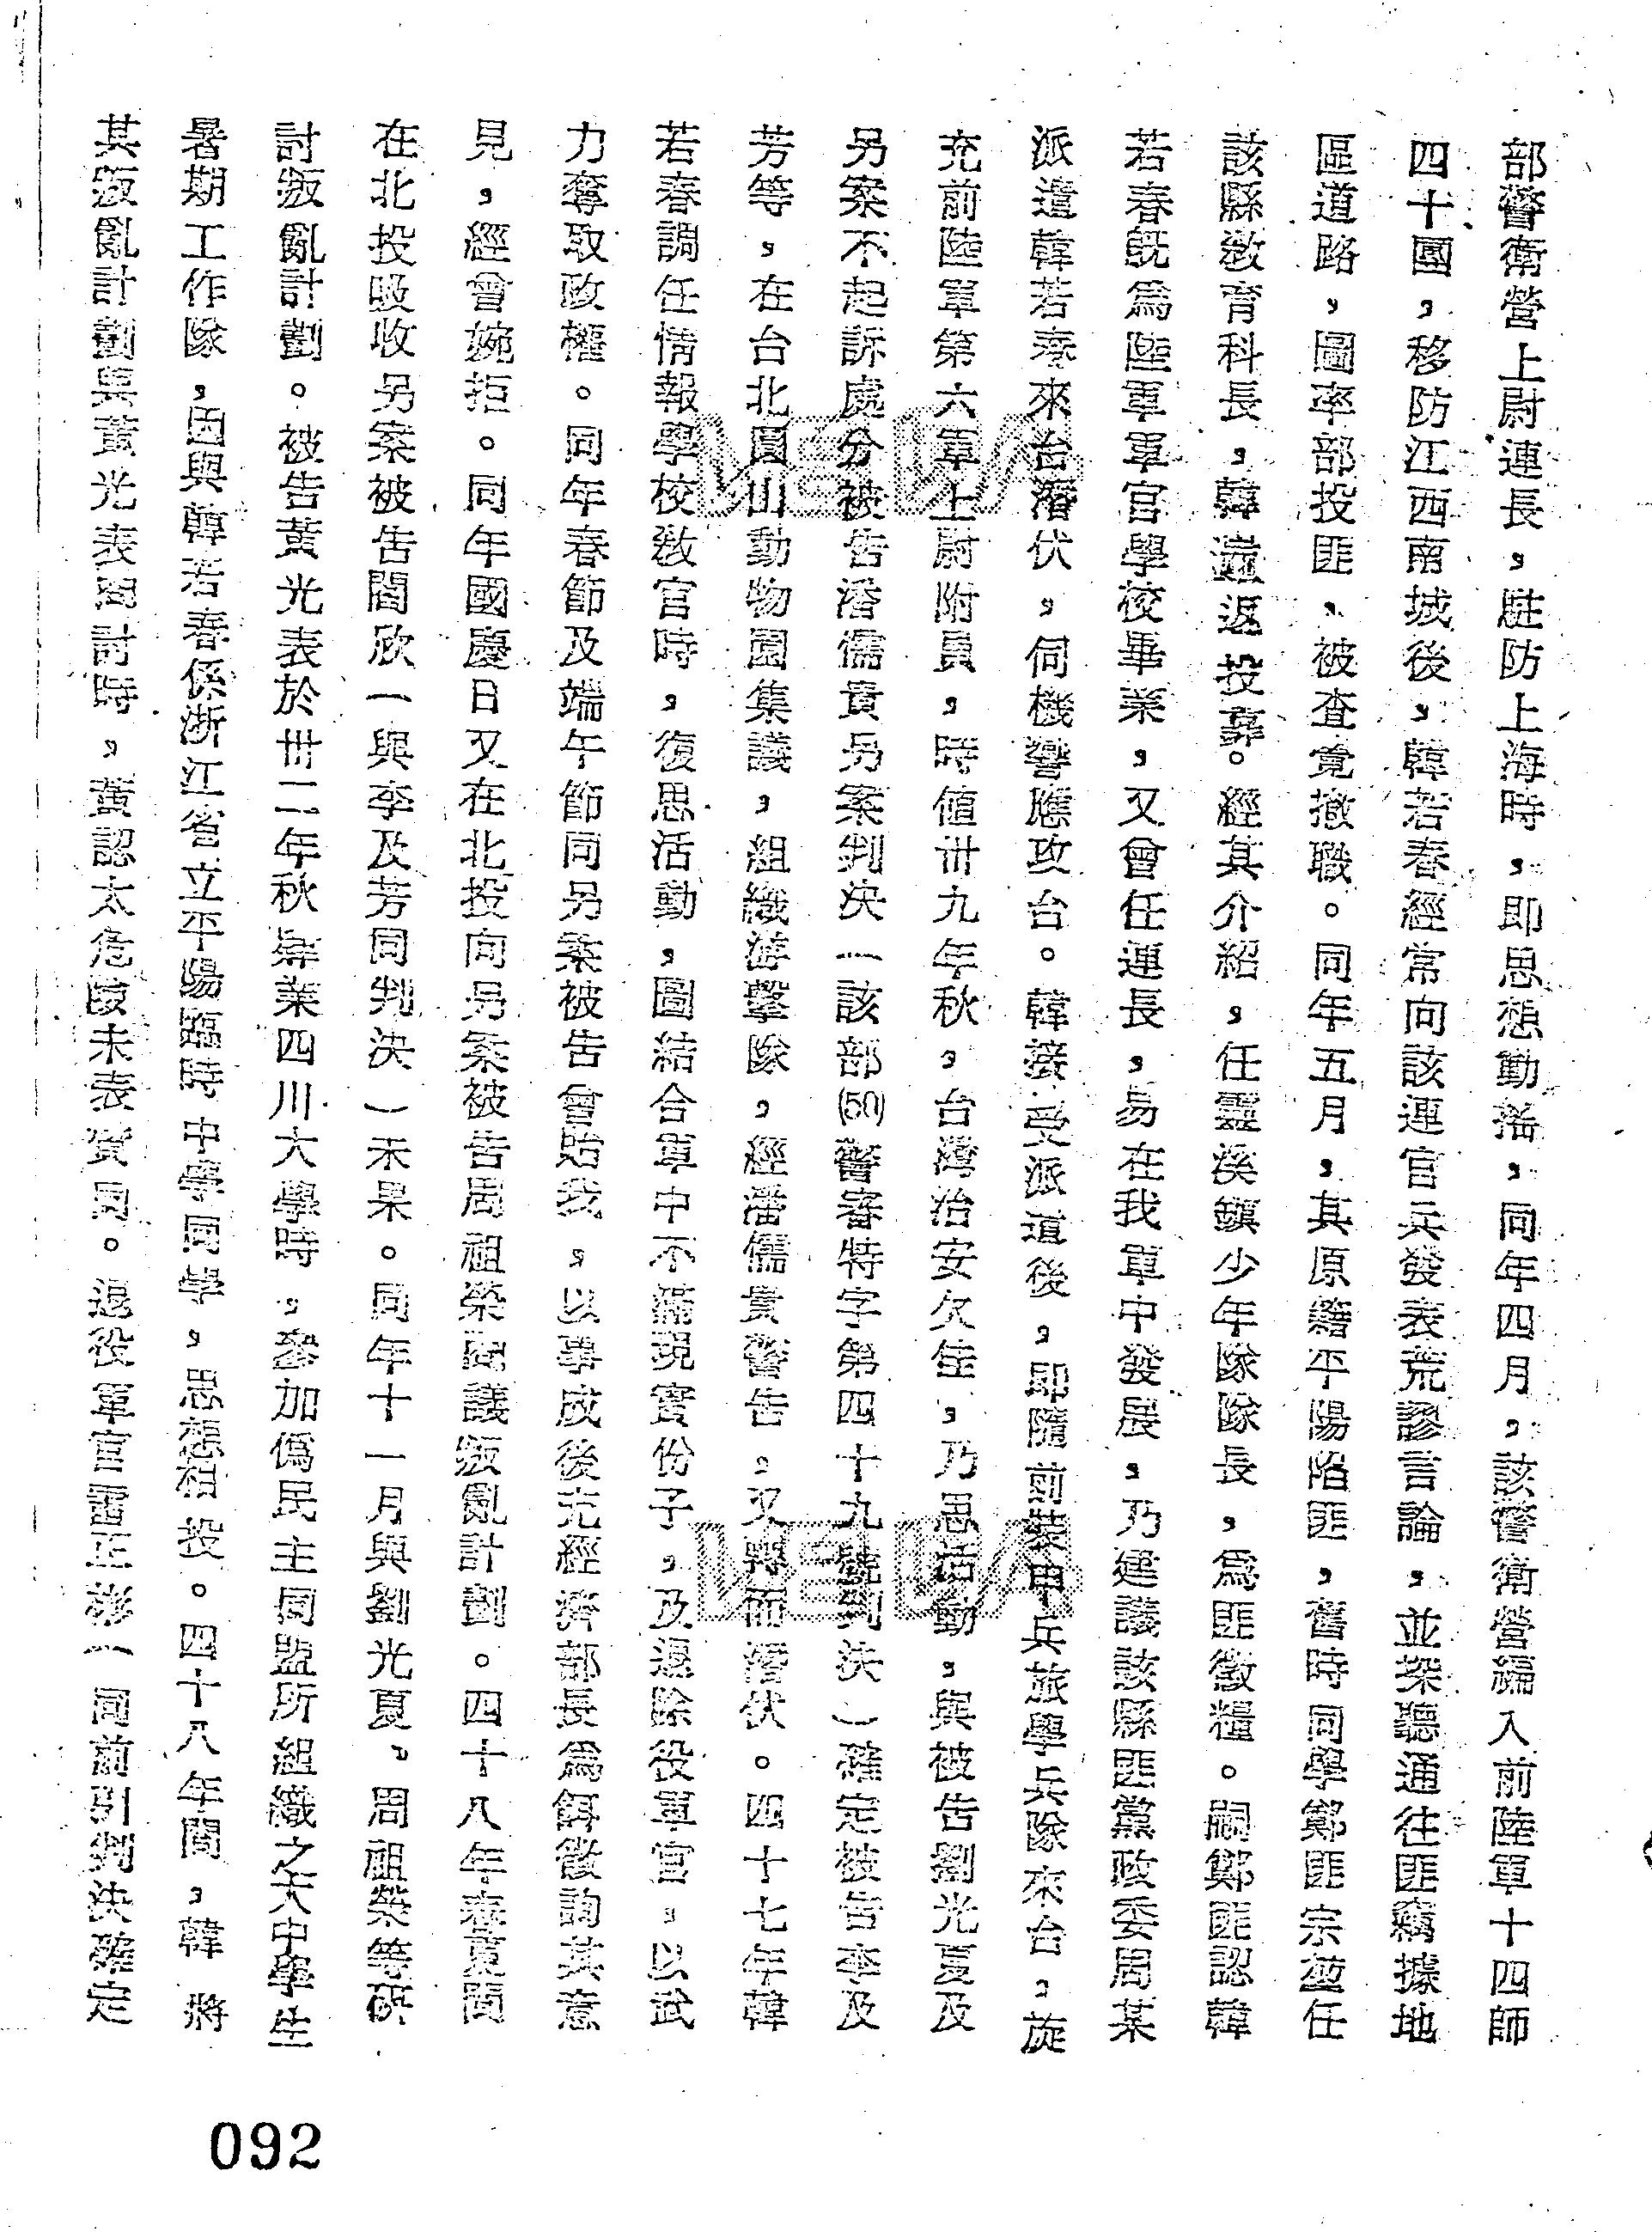 部警衛營上尉連長，駐防上海時，即思想動搖，同年四月，該警衛營編入前陸軍十四師
四十團，移防江西南城後，韓若春經常向該連官兵發表荒謬言論，並探聽通往匪竊據地
區道路，圖率部投匪，被查覺撤職。同年五月，其原籍平陽陷匪，舊時同學鄭匪宗㙯任
該縣敎育科長，韓遄返投靠。經其介紹，任靈溪鎮少年隊隊長，爲匪徵糧。嗣鄭匪認韓
若春旣爲陸軍軍官學校畢業，又曾任連長，易在我軍中發展，乃建議該縣匪黨政委周某
派遣韓若春來台潛伏，伺機響應攻台。韓接受派遣後，即隨前裝甲兵旅學兵隊來台，旋
充前陸軍第六軍上尉附員，時値卅九年秋，台灣治安欠佳，乃思活動，與被告劉光夏及
另案不起訴處分被告潘儒貴另案判決（該部(50)警審特字第四十九號判決）確定被告李及
芳等，在台北圓山動物園集議，組織游擊隊，經潘儒貴警告，又轉而潛伏。四十七年韓
若春調任情報學校敎官時，復思活動，圖結合軍中不滿現實份子，及退除役軍官，以武
力奪取政權。同年春節及端午節同另案被告曾貽我，以事成後充經濟部長爲餌徵詢其意
見，經曾婉拒。同年國慶日又在北投向另案被告周祖榮商議叛亂計劃。四十八年春夏間
在北投吸收另案被告閻欣（與李及芳同判決）未果。同年十一月與劉光夏、周祖榮等硏
討叛亂計劃。被告黃光表於卅二年秋肄業四川大學時，參加僞民主同盟所組織之大中學生
暑期工作隊，因與韓若春係浙江省立平陽臨時中學同學，思想相投。四十八年間，韓將
其叛亂計劃與黃光表商討時，黃認太危險未表贊同。退役軍官雷正彬（同前引判決確定
092